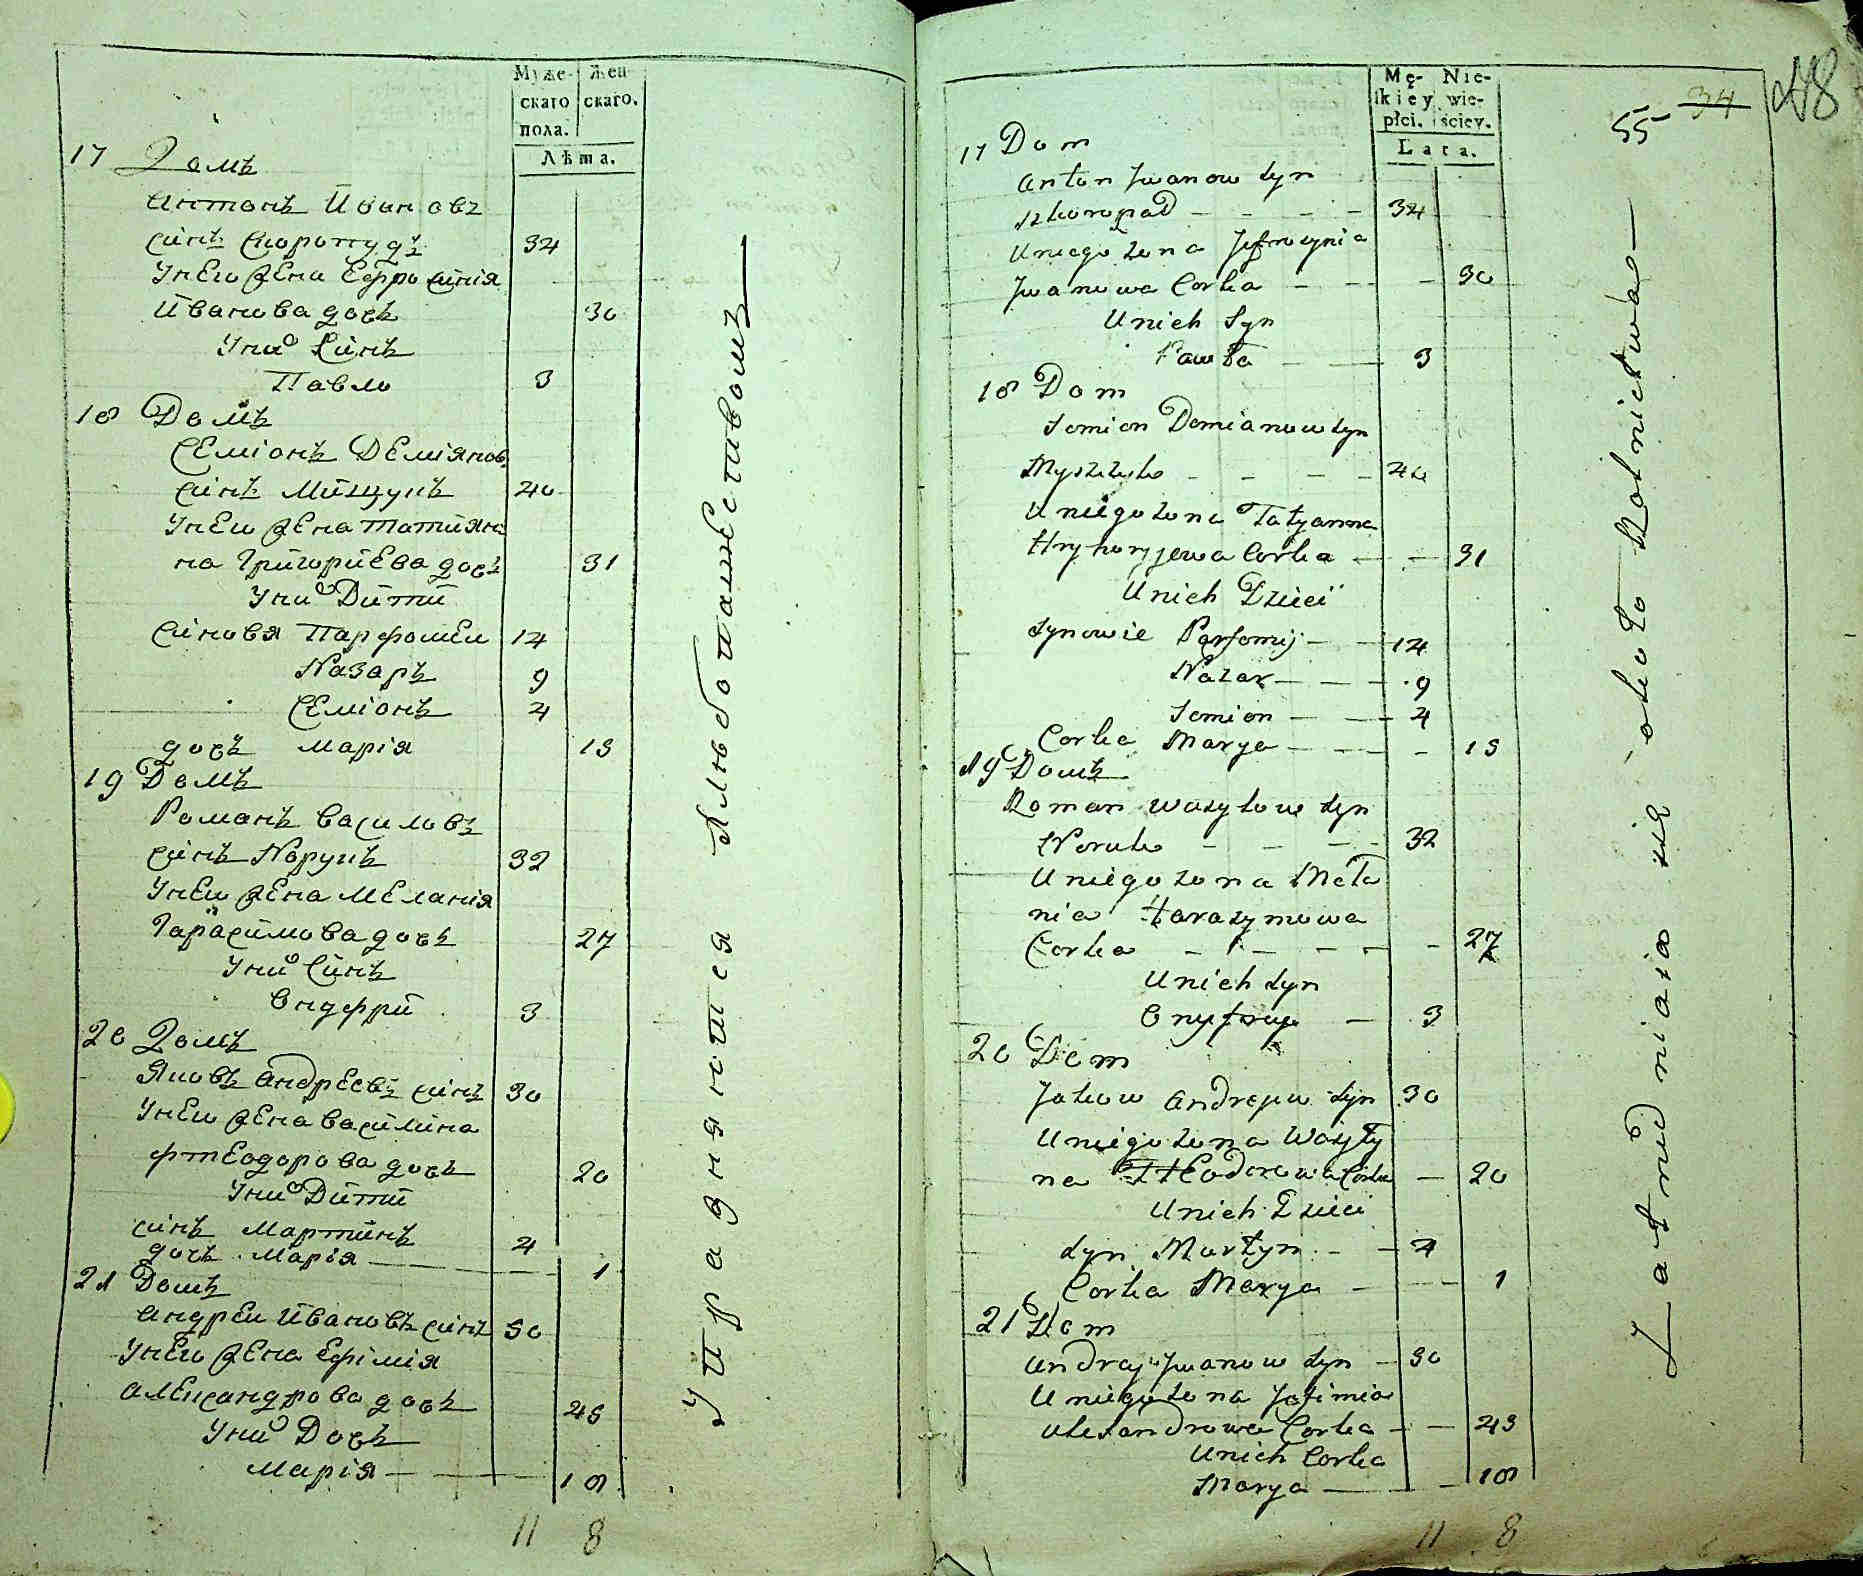 Муже- Жен
скаго скаго.
пола.
Лѣта.
17 Домъ
Антонъ Ивановъ
синъ Скоропудъ 34
Унего жена Ефросинія
Иванова дочь 30
Уних Синъ
Павло 3
18 Домъ
Семіонъ Деміянов
синъ Мишукъ 40
Унего жена Татияна
на Григорйева дочь 31
Уних Дити
Синовя Парфомей 14
Назаръ 9
Семіонъ 4
дочь Марія 13
19 Домъ
Романъ Василовъ
Синъ Норукъ 32
Унего жена Меланія
Гарасимова дочь 27
Уних Синъ
Ондфрій 3
20 Домъ
Яковъ Андреевъ синъ 30
Унего жена Василина
Фтеодорова дочь 20
Уних Дити
синъ Мартинъ 4
дочь Марія 1
21 Домъ
Андрей Ивановъ синъ 50
Унего жена Ефімія
Александрова дочь 43
Уних Дочь
Марія 18
11 8
Упражняются Хлебопашествомъ
Mę- Nie-
ſkiey wie-
płci. ściey.
Lata.
34
55
48
17 Dom
Anton Jwanow Syn
Skoropad 34
Uniego żona Jefrosynia
Jwanowa Corka 30
Unich Syn
Pawło 3
18 Dom
Semion Demianow Syn
Myszczuk 40
Uniego żona Tatyanna
Hryhoryjewa Corka 31
Unich Dzieci
Synowie Parfomij 14
Nazar 9
Semion 4
Corka Marya 13
19 Домъ
Roman Wasylow Syn
Noruk 32
Uniego żona Meła
nia Harasymowa
Corka 27
Unich Syn
Onyfryy 3
20 Dom
Jakow Andrejew Syn 30
Uniego żona Wasyły
na Fteodorowa Corka 20
Unich Dzieci
Syn Martyn 4
Corka Marya 1
21 Dom
Andrey Jwanow Syn 50
Uniego żona Jefimia
Alexandrowa Corka 43
Unich Corka
Marya 18
11 8
Zatrudniaią się około Rolnictwa